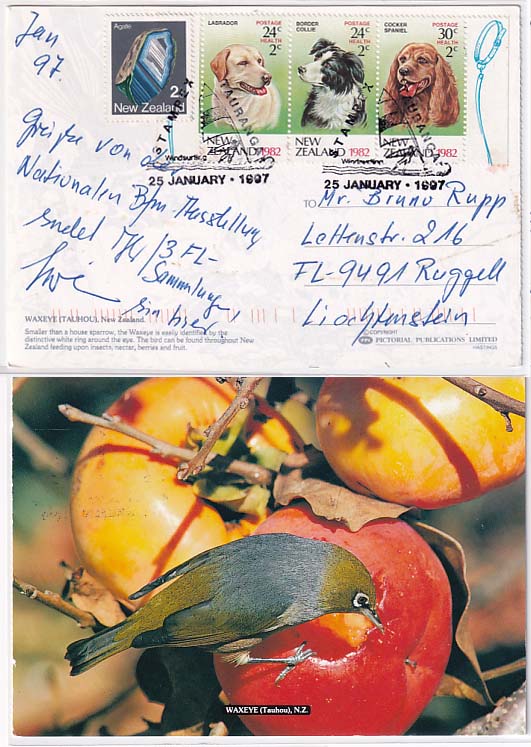 Jan
97.
Agate
2c
New Zealand
LABRADOR
POSTAGE
24c
HEALTH
2c
NEW
ZEALAND 1982
BORDER
COLLIE
POSTAGE
24c
HEALTH
2c
NEW
ZEALAND 1982
COCKER
SPANIEL
POSTAGE
30c
HEALTH
2c
NEW
ZEALAND 1982
STAMPEX
TAURANGA
Windsurfing
25 JANUARY · 1997
STAMPEX
TAURANGA
Windsurfing
25 JANUARY · 1997
Grüße von der
Nationalen Bfm. Ausstellung
sendet
/3 FL-
Sammlungen
sin hier
TO
Mr. Bruno Rupp
Lettenstr. 216
FL-9491 Ruggell
Liechtenstein
WAXEYE (TAUHOU), New Zealand
Smaller than a house sparrow, the Waxeye is easily identified by the
distinctive white ring around the eye. The bird can be found throughout New
Zealand feeding upon insects, nectar, berries and fruit.
© COPYRIGHT
PPL PICTORIAL PUBLICATIONS LIMITED
HASTINGS
WAXEYE (Tauhou), N.Z.